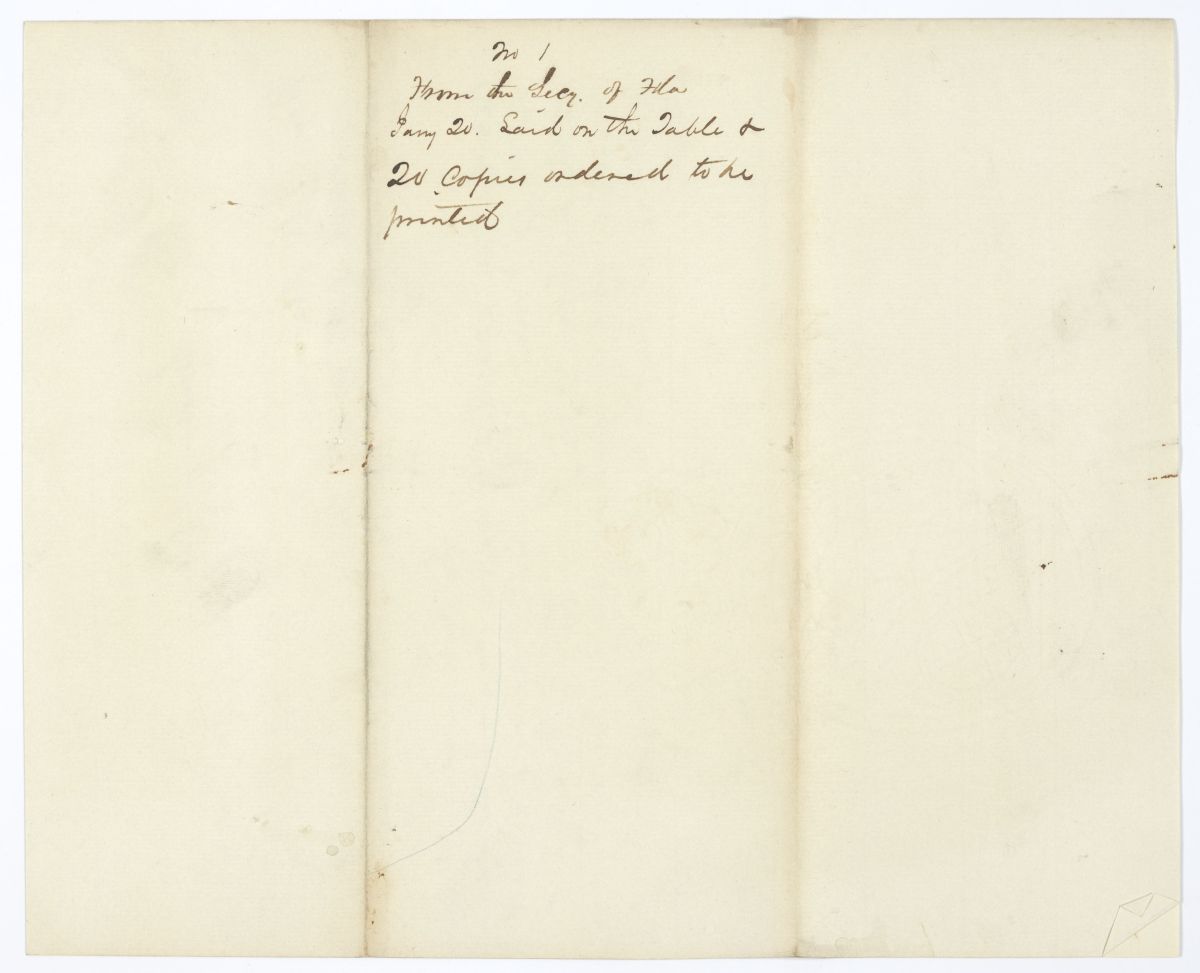 No 1
From the Secy. of Fla
Jany 20. Laid on the Table &
20 Copies ordered to be
printed